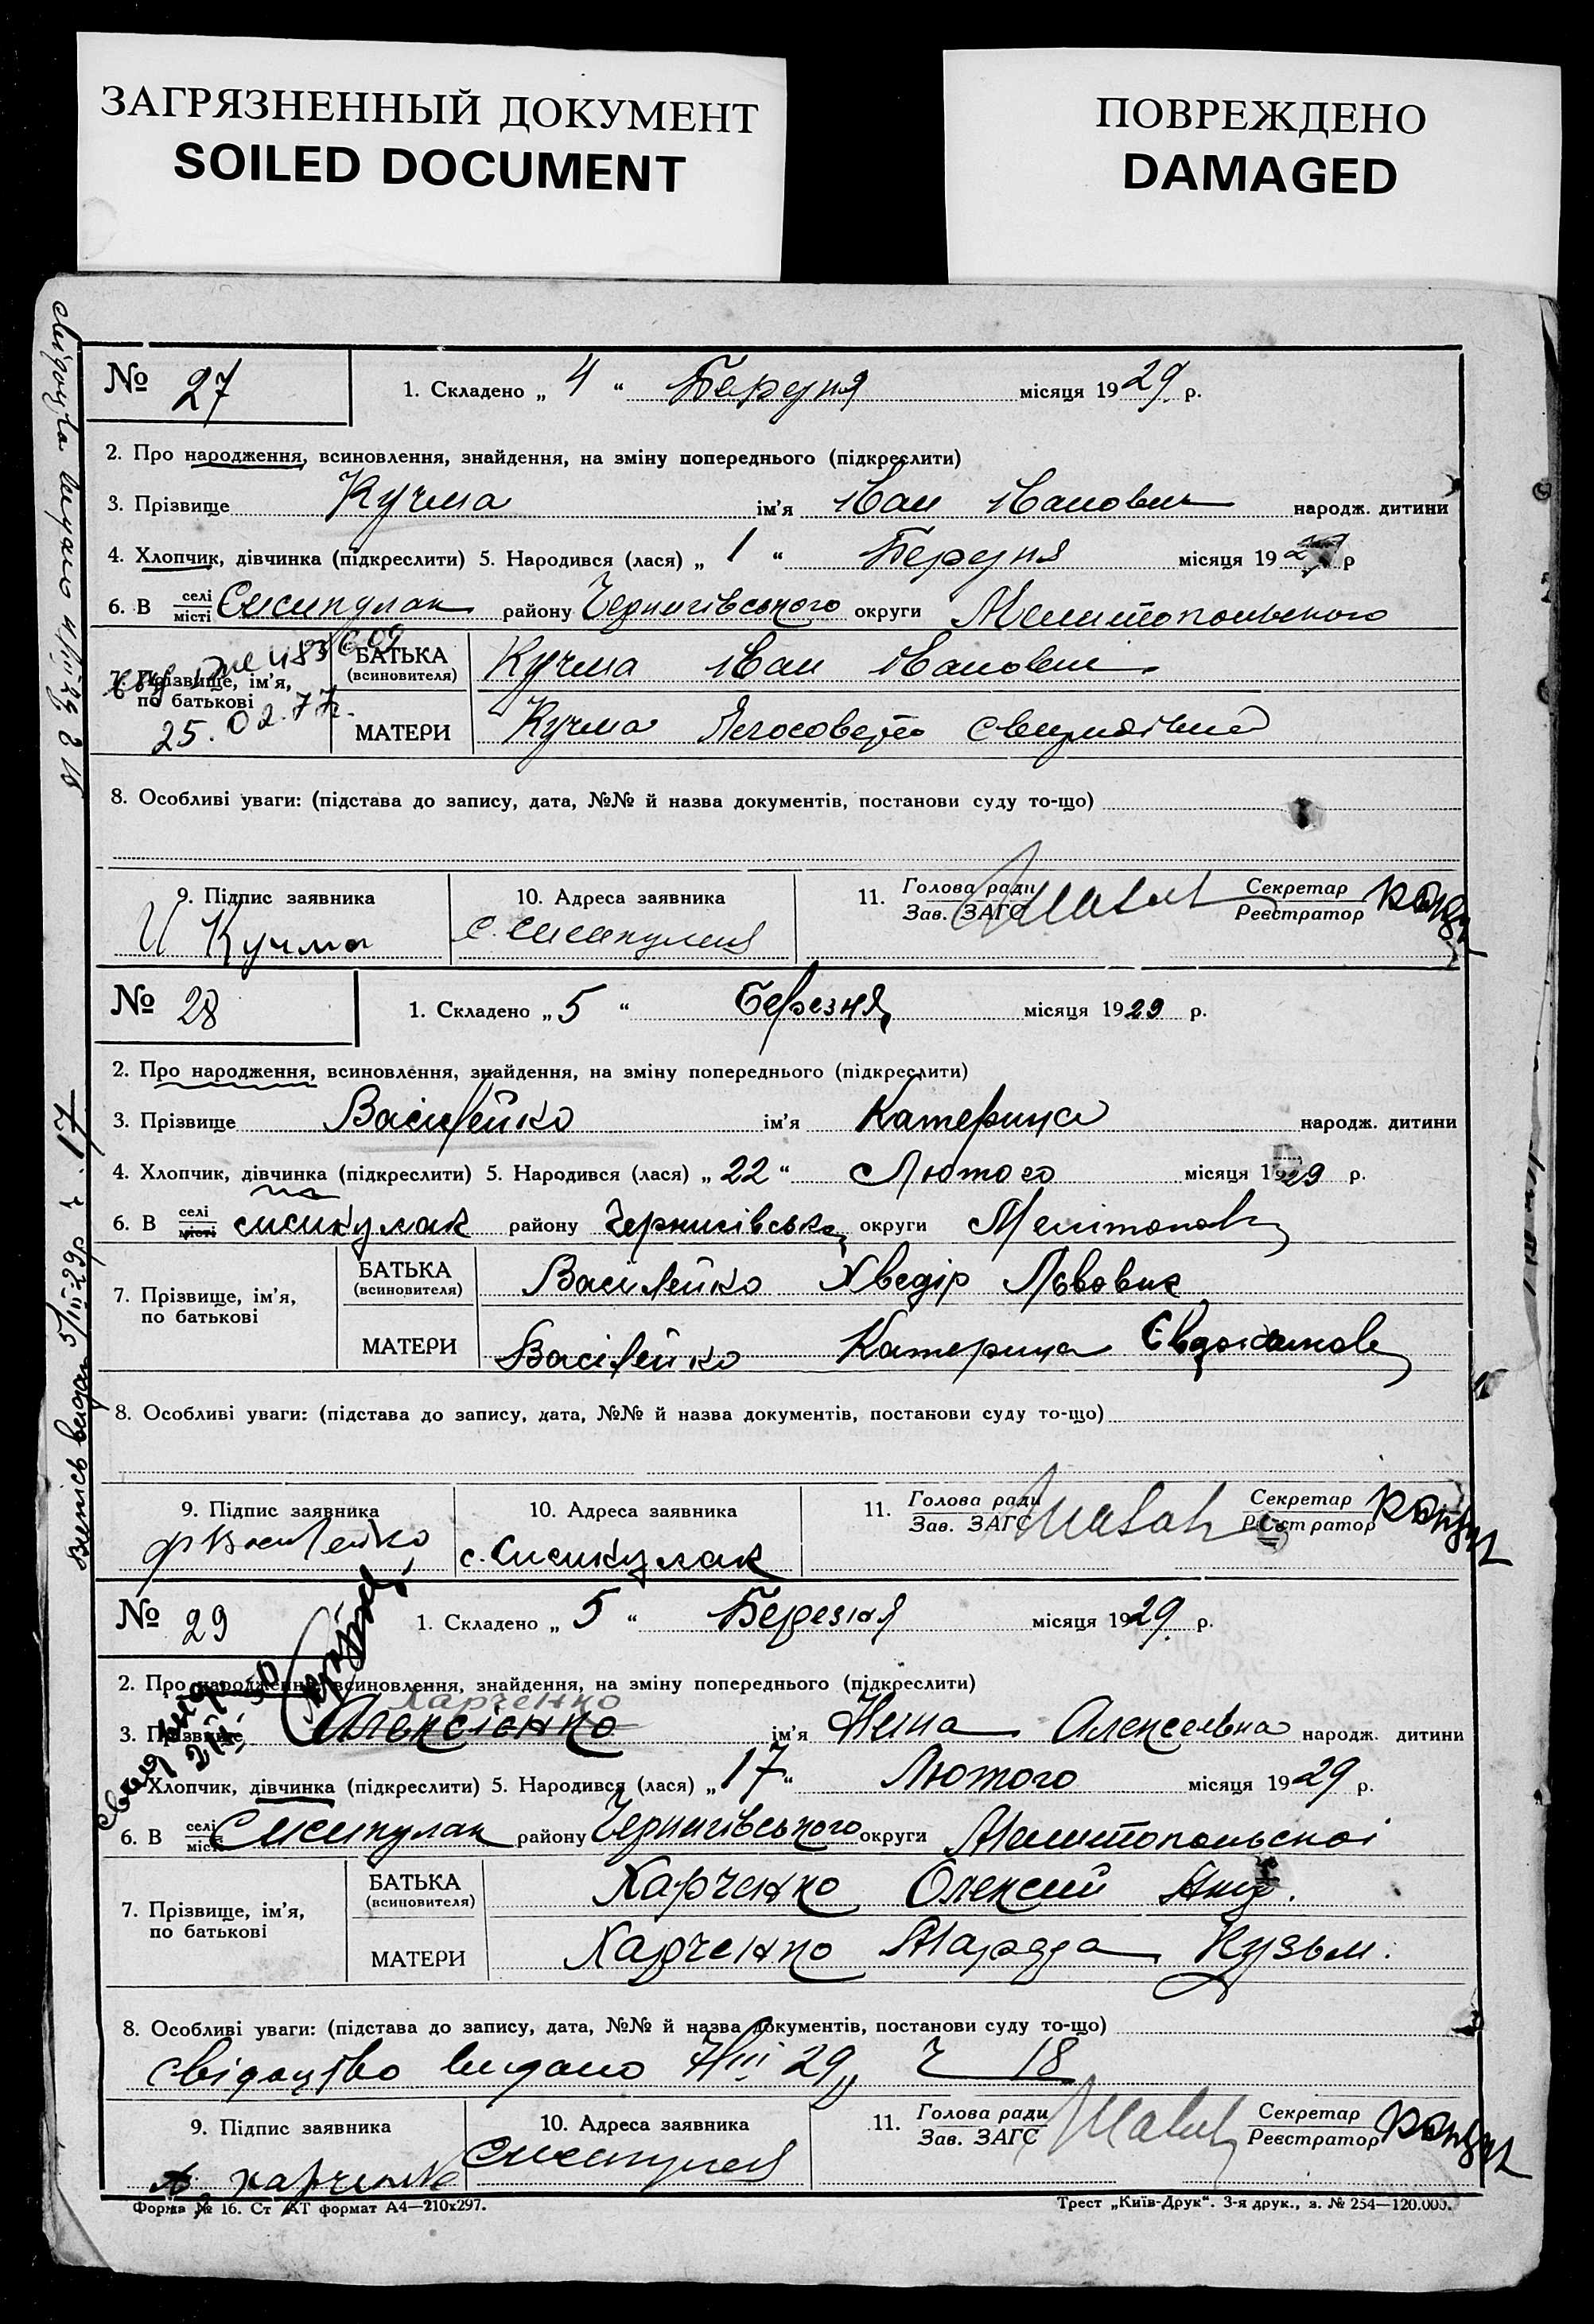 ЗАГРЯЗНЕННЫЙ ДОКУМЕНТ
SOILED DOCUMENT
ПОВРЕЖДЕНО
DAMAGED
№ 27
1. Складено „ 4 “ Березня місяця 1929 р.
2. Про народження, всиновлення, знайдення, на зміну попереднього (підкреслити)
3. Прізвище Кучма ім'я Іван Іванович народж. дитини
4. Хлопчик, дівчинка (підкреслити) 5. Народився (лася) „ 1 “ Березня місяця 192 р
6. В селі місті Сисикулак району Чернигівського округи Мелитопольского
7. Прізвище, ім'я, по батькові
25.02.77г.
БАТЬКА (всиновителя) Кучма Іван Іванович
МАТЕРИ Кучма
8. Особливі уваги: (підстава до запису, дата, №№ й назва документів, постанови суду то-що)
9. Підпис заявника
И Кучма
10. Адреса заявника
с.
11. Голова ради Зав. ЗАГС
Секретар Реєстратор
№ 28
1. Складено „ 5 “ березня місяця 1929 р.
2. Про народження, всиновлення, знайдення, на зміну попереднього (підкреслити)
3. Прізвище Василейко ім'я Катерина народж. дитини
4. Хлопчик, дівчинка (підкреслити) 5. Народився (лася) „ 22 “ Лютого місяця 1929 р.
6. В селі місті сисикулак району Чернигівськ округи Мелітополь
7. Прізвище, ім'я, по батькові
БАТЬКА (всиновителя) Василейко Хведір Львович
МАТЕРИ Василейко Катерина
8. Особливі уваги: (підстава до запису, дата, №№ й назва документів, постанови суду то-що)
9. Підпис заявника
Ф Василейко
10. Адреса заявника
с. Сисикулак
11. Голова ради Зав. ЗАГС
Секретар Реєстратор
№ 29
1. Складено „ 5 “ Березня місяця 1929. р.
2. Про народження, всиновлення, знайдення, на зміну попереднього (підкреслити)
Харченко
3. Прізвище Алексієнко ім'я Нина Алексеевна народж. дитини
4. Хлопчик, дівчинка (підкреслити) 5. Народився (лася) „ 17 “ Лютого місяця 1929 р.
6. В селі місті Сисикулак району Чернигівського округи Мелитопольскоі
7. Прізвище, ім'я, по батькові
БАТЬКА (всиновителя) Харченко Олексий
МАТЕРИ Харченко Марфа Кузьм.
8. Особливі уваги: (підстава до запису, дата, №№ й назва документів, постанови суду то-що)
свідоцтво видано 29 18
9. Підпис заявника
А харченко
10. Адреса заявника
11. Голова ради Зав. ЗАГС
Секретар Реєстратор
Форма № 16. Ст АТ формат А4—210х297.
Трест „Київ-Друк“. 3-я друк., з. № 254—120.000.